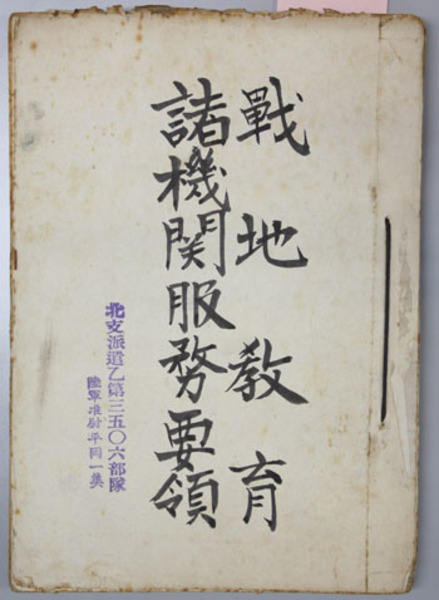 戰地教育
諸機関服務要領
北支派遣乙第三五〇六部隊
陸軍准尉平岡一美